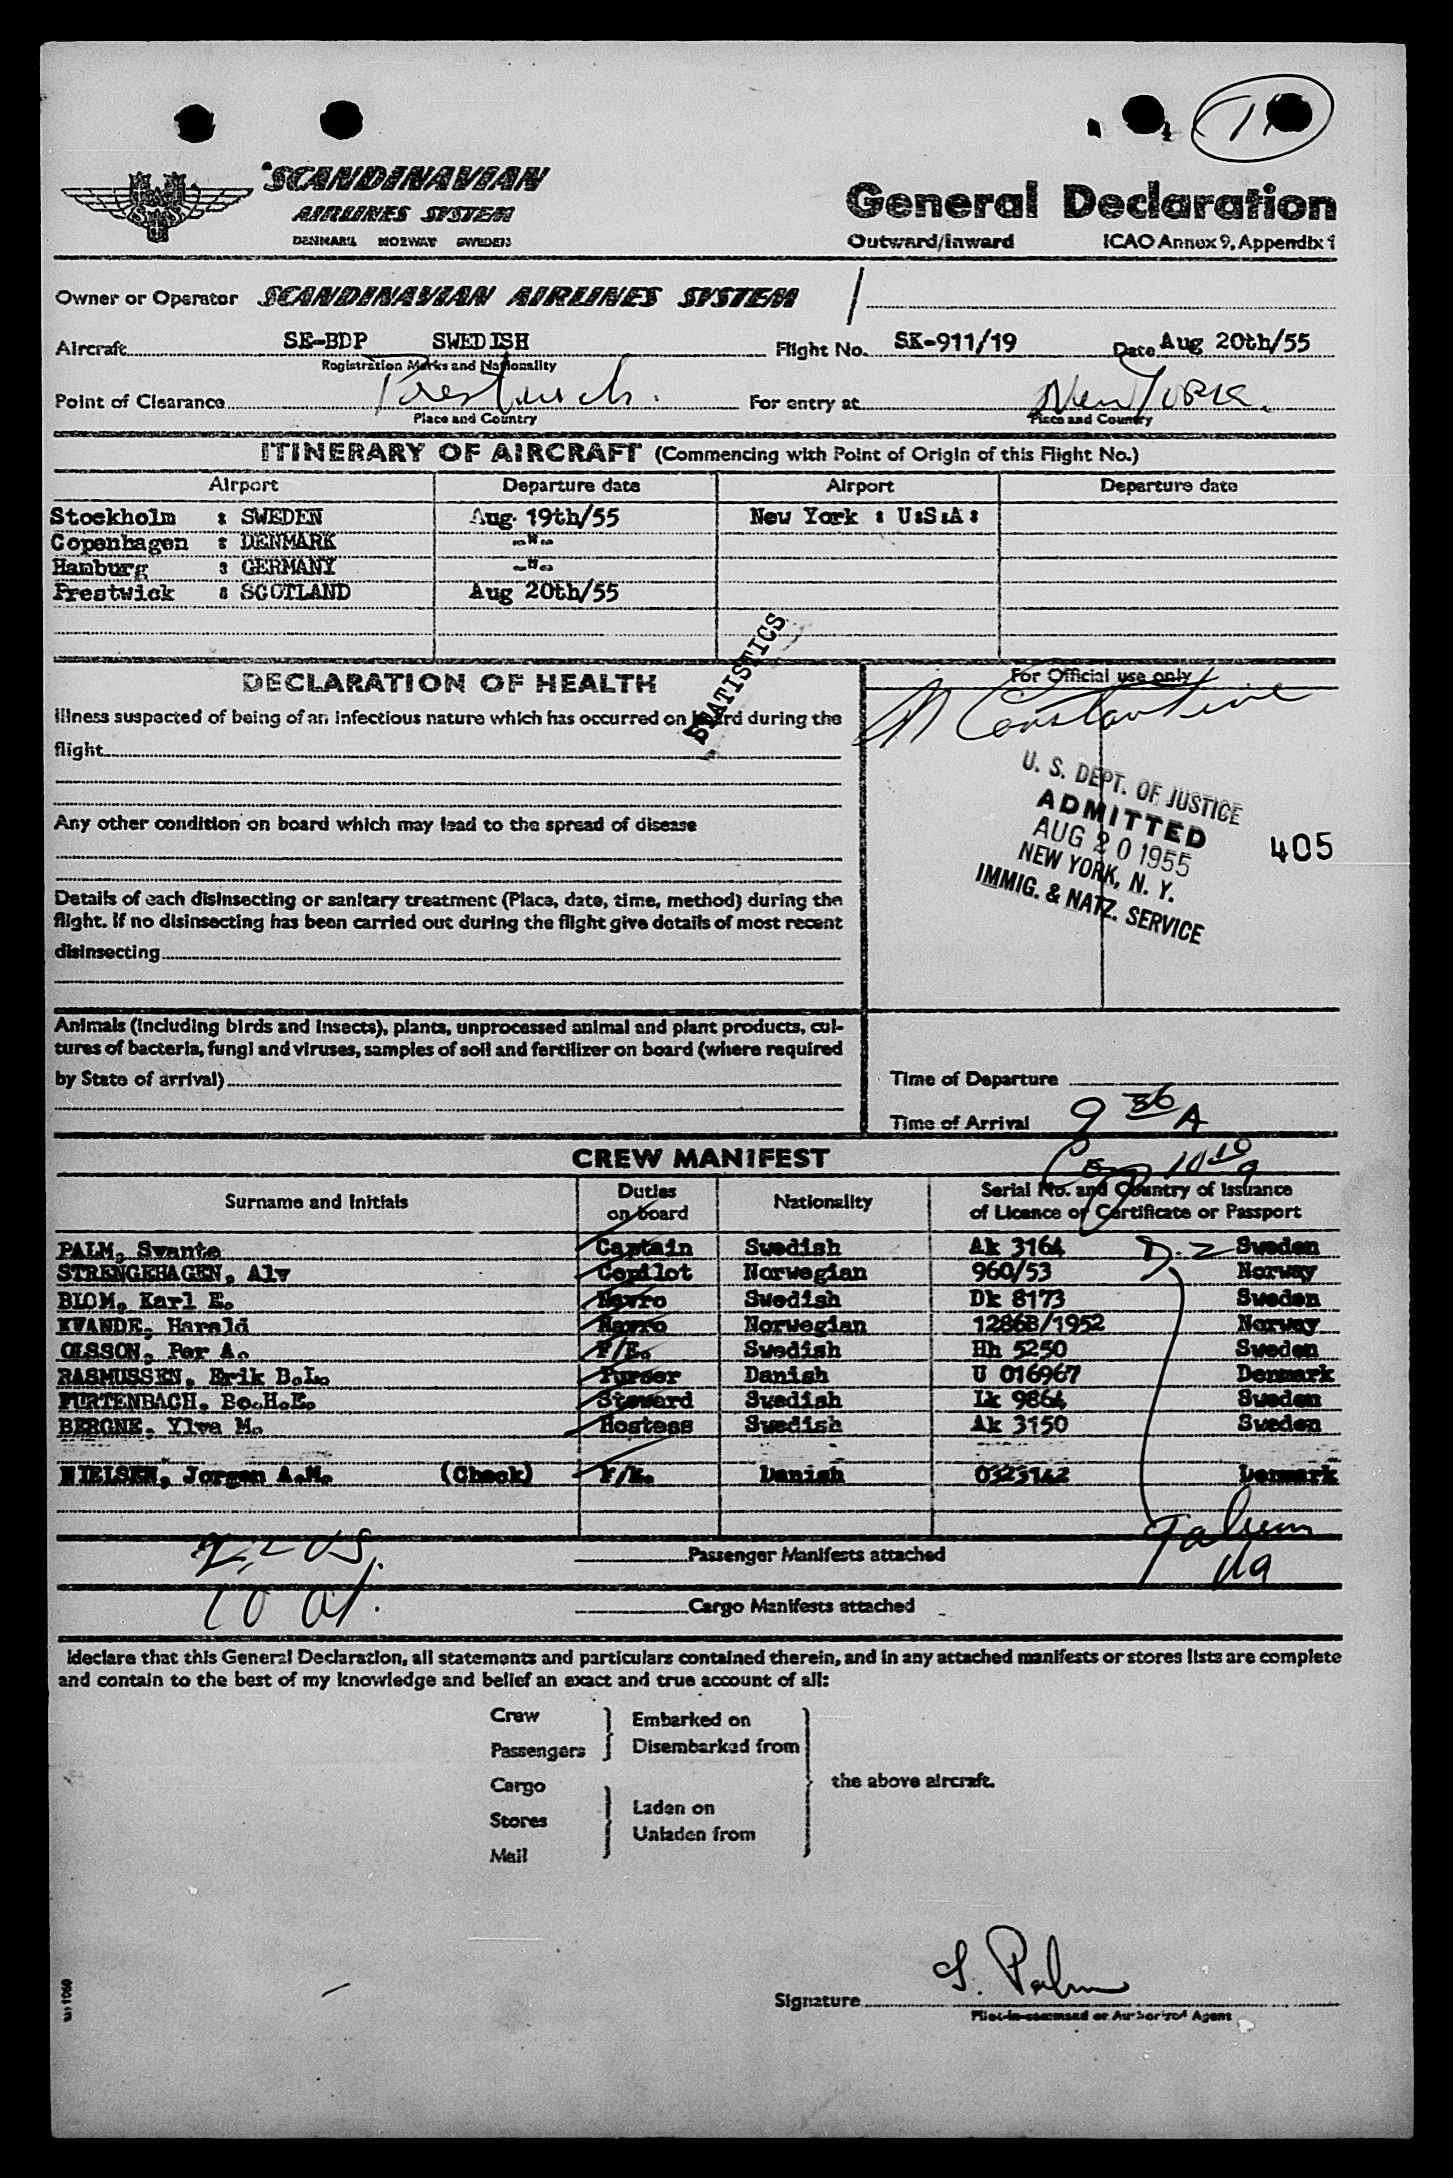 SCANDINAVIAN
AIRLINES SYSTEM
DENMARK NORWAY SWEDEN
General Declaration
Outward/Inward ICAO Annex 9, Appendix 1
Owner or Operator SCANDINAVIAN AIRLINES SYSTEM
Aircraft SE-BDP SWEDISH Flight No. SK-911/19 Date Aug 20th/55
Registration Marks and Nationality
Point of Clearance Prestwick. For entry at New York.
Place and Country Place and Country
ITINERARY OF AIRCRAFT (Commencing with Point of Origin of this Flight No.)
Airport Departure date Airport Departure date
Stockholm : SWEDEN Aug. 19th/55 New York : U:S:A:
Copenhagen : DENMARK -"-
Hamburg : GERMANY -"-
Prestwick : SCOTLAND Aug 20th/55
STATISTICS
DECLARATION OF HEALTH
For Official use only
Illness suspected of being of an infectious nature which has occurred on board during the
flight
Constantine
U. S. DEPT. OF JUSTICE
ADMITTED
AUG 20 1955
NEW YORK, N. Y.
IMMIG. & NATZ. SERVICE
405
Any other condition on board which may lead to the spread of disease
Details of each disinsecting or sanitary treatment (Place, date, time, method) during the
flight. If no disinsecting has been carried out during the flight give details of most recent
disinsecting
Animals (including birds and insects), plants, unprocessed animal and plant products, cul-
tures of bacteria, fungi and viruses, samples of soil and fertilizer on board (where required
by State of arrival)
Time of Departure
Time of Arrival 9 36 A
CREW MANIFEST
Surname and Initials Duties on board Nationality Serial No. and Country of Issuance
of Licence or Certificate or Passport
PALM, Svante Captain Swedish Ak 3164 D.2 Sweden
STRENGEHAGEN, Alv Copilot Norwegian 960/53 Norway
BLOM, Karl E. Navro Swedish Dk 8173 Sweden
KVANDE, Harald Navro Norwegian 12868/1952 Norway
OLSSON, Per A. F/E. Swedish Hh 5250 Sweden
RASMUSSEN, Erik B.L. Purser Danish U 016967 Denmark
FURTENBACH, Bo.H.E. Steward Swedish Lk 9864 Sweden
BERGNE, Ylva M. Hostess Swedish Ak 3150 Sweden
NIELSEN, Jorgen A.M. (Check) F/E. Danish 0323142 Denmark
Passenger Manifests attached
Cargo Manifests attached
I declare that this General Declaration, all statements and particulars contained therein, and in any attached manifests or stores lists are complete
and contain to the best of my knowledge and belief an exact and true account of all:
Crew Embarked on
Passengers Disembarked from
Cargo the above aircraft.
Stores Laden on
Mail Unladen from
S. Palm
Signature
Pilot-in-command or Authorized Agent